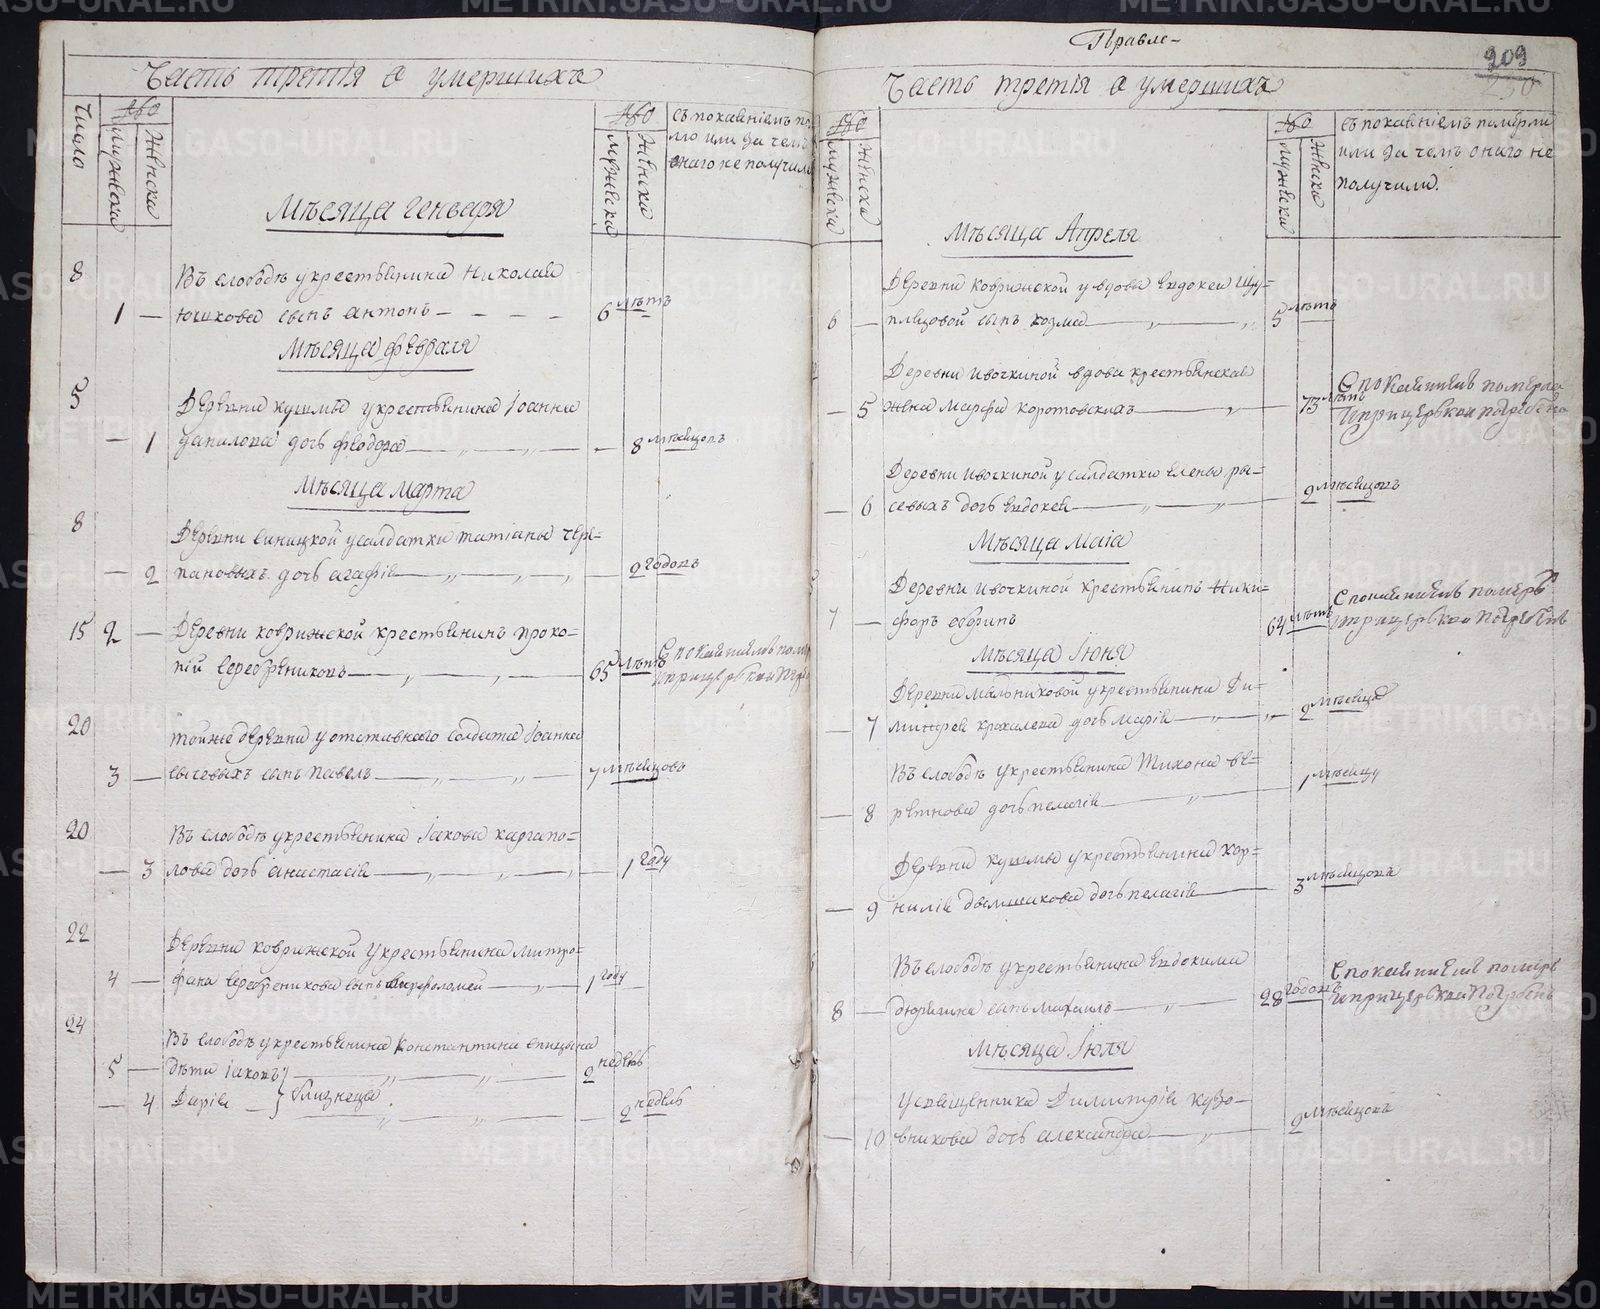 Часть третія о умершихъ
Число
мужеска
женска
мужеска
женска
съ покаяніемъ по
или за чемъ
онаго не получили
Мѣсяца генваря
8
Въ слободѣ у крестьянина Николая
1 — Юшкова сынъ Антонъ — — — — 6 лѣтъ
Мѣсяца февраля
5
Деревни Кушмы у крестьянина Іоанна
— 1 Данилова дочь Феодора — 8 мѣсяцовъ
Мѣсяца марта
8
Деревни Синицкой у салдатки Татіаны Чере=
— 2 пановыхъ дочь Агафія — 2 годовъ
15 2 — Деревни Коврижской крестьянинъ Проко=
пій Серебрениковъ — 65 лѣтъ
Съ покаяніемъ
20
Тойже деревни у отставнаго солдата Іоанна
3 — Сычевыхъ сынъ Павелъ — 7 мѣсяцовъ
20
Въ слободѣ у крестьянина Іакова Каргапо=
— 3 лова дочь Анастасія — 1 году
22
Деревни Коврижской у крестьянина Митро=
4 — фана Серебреникова сынъ Варфоломей — 1 году
24
Въ слободѣ у крестьянина Константина Спицына
5 — дѣти Іаковъ } — 2 недѣль
— 4 Дарія } близнецы. — 2 недѣль
Правле-
209
230
Часть третія о умершихъ
мужеска
женска
мужеска
женска
съ покаяніемъ померли
или за чемъ онаго не
получили.
Мѣсяца Апреля
Деревни Коврижской у вдовы Евдокеи Шу=
6 — плецовой сынъ Козма — 5 лѣтъ
Деревни Ивочкиной вдова крестьянская
— 5 жена Марфа Коротовскихъ — 73 лѣтъ
С покаяніемъ померла
и при церькви погребена
Деревни Ивочкиной у салдатки Елены Ры=
— 6 севыхъ дочь Евдокея — 2 мѣсяцовъ
Мѣсяца Маіа
Деревни Ивочкиной крестьянинъ Ники=
7 — форъ Обринъ 64 лѣтъ
С покаяніемъ померъ
и при церькви погребенъ
Мѣсяца Іюня
Деревни Мальниковой у крестьянина Ди=
— 7 митрея Крохалева дочь Марія — 2 мѣсяца
Въ слободѣ у крестьянина Тихона Ве=
— 8 ретнова дочь Пелагія — 1 мѣсяцу
Деревни Кушмы у крестьянина Кор=
— 9 нилія Двоишикова дочь Пелагія — 3 мѣсяцовъ
Въ слободѣ у крестьянина Евдокима
8 — Дюрягина сынъ Михаилъ — 28 годовъ
С покаяніемъ померъ
и при церькви погребенъ
Мѣсяца Іюля
У священника Димитрія Кузо—
— 10 вникова дочь Александра — 2 мѣсяцовъ
METRIKI.GASO-URAL.RU